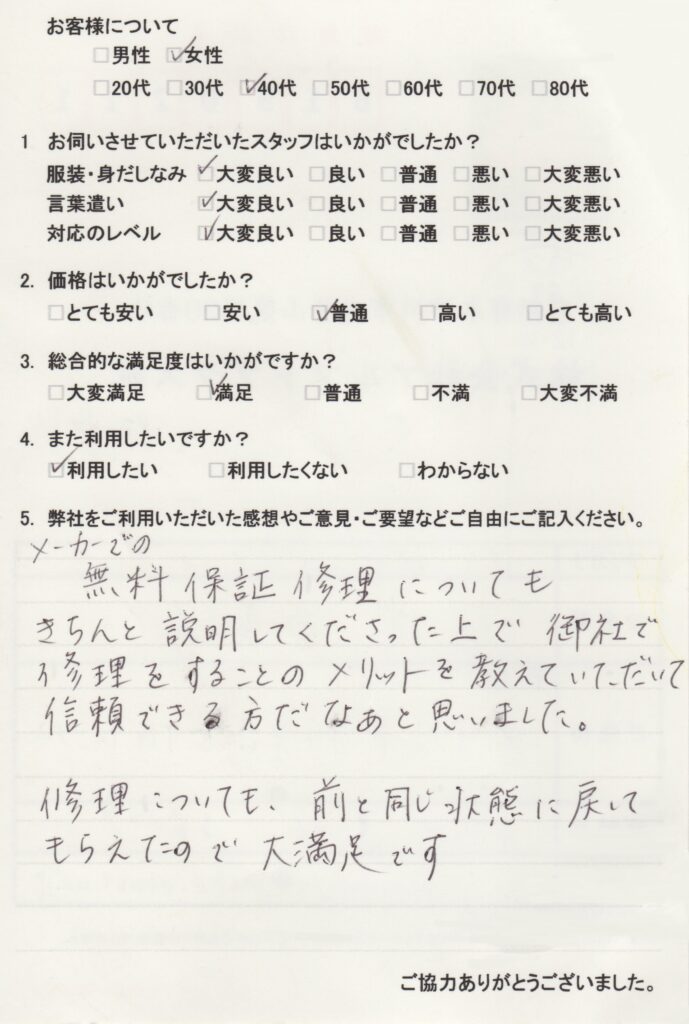 お客様について
□男性 ☑女性
□20代 □30代 ☑40代 □50代 □60代 □70代 □80代
1 お伺いさせていただいたスタッフはいかがでしたか？
服装・身だしなみ ☑大変良い □良い □普通 □悪い □大変悪い
言葉遣い ☑大変良い □良い □普通 □悪い □大変悪い
対応のレベル ☑大変良い □良い □普通 □悪い □大変悪い
2. 価格はいかがでしたか？
□とても安い □安い ☑普通 □高い □とても高い
3. 総合的な満足度はいかがですか？
□大変満足 ☑満足 □普通 □不満 □大変不満
4. また利用したいですか？
☑利用したい □利用したくない □わからない
5. 弊社をご利用いただいた感想やご意見・ご要望などご自由にご記入ください。
メーカーでの
無料保証修理についても
きちんと説明してくださった上で御社で
修理をすることのメリットを教えていただいて
信頼できる方だなぁと思いました。
修理についても、前と同じ状態に戻して
もらえたので大満足です
ご協力ありがとうございました。